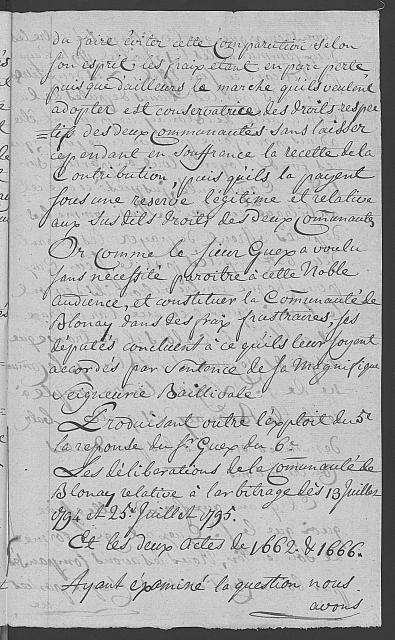 du faire éviter cette Comparution selon
son esprit; ses fraix étant en pure perte
puisque d'ailleurs la marche qu'ils veulent
adopter est conservatrice, des droits respec
=tifs des deux Communautés sans laisser
cependant en souffrance la recette de la
Contribution, puis qu'ils la payent
sous une reserve légitime et relative
aux susdits droits des deux Communautés
Or comme le Sieur Guex a voulu
sans nécessité paroitre à cette Noble
audience, et constituer la Communauté de
Blonay dans des fraix frustraires, ses
députés concluent à ce qu'ils leur soyent
accordés par Sentence de Sa Magnifique
Seigneurie Baillivale.
Produisant outre l'exploit du 5e
la reponse du Sr. Guex du 6e
Les délibérations de la Communauté de
Blonay relative à l'arbitrage dès 13 Juillet
1794 et 25e Juillet 1795.
Et les deux actes de 1662. & 1666.
Ayant examiné la question nous
avons